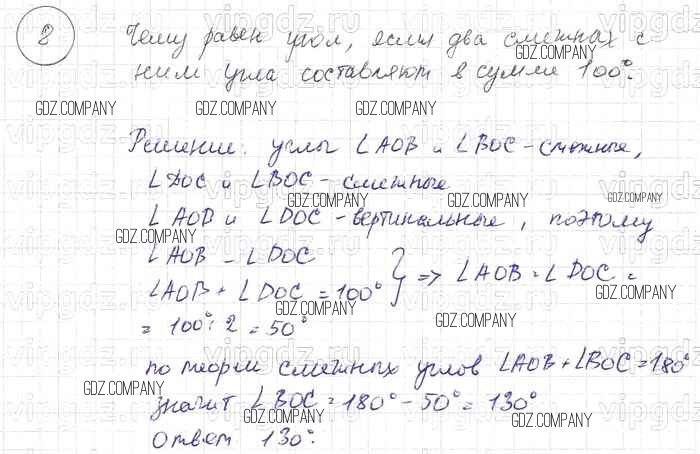 8
Чему равен угол, если два смежных с
ним угла составляют в сумме 100°.
Решение: углы ∠AOB и ∠BOC - смежные,
∠DOC и ∠BOC - смежные
∠AOB и ∠DOC - вертикальные, поэтому
∠AOB = ∠DOC
∠AOB + ∠DOC = 100° } => ∠AOB = ∠DOC =
= 100° : 2 = 50°
по теореме смежных углов ∠AOB + ∠BOC = 180°
значит ∠BOC = 180° - 50° = 130°
Ответ 130°.
GDZ.COMPANY
GDZ.COMPANY
GDZ.COMPANY
GDZ.COMPANY
GDZ.COMPANY
GDZ.COMPANY
GDZ.COMPANY
GDZ.COMPANY
GDZ.COMPANY
GDZ.COMPANY
GDZ.COMPANY
GDZ.COMPANY
GDZ.COMPANY
GDZ.COMPANY
vipgdz.ru